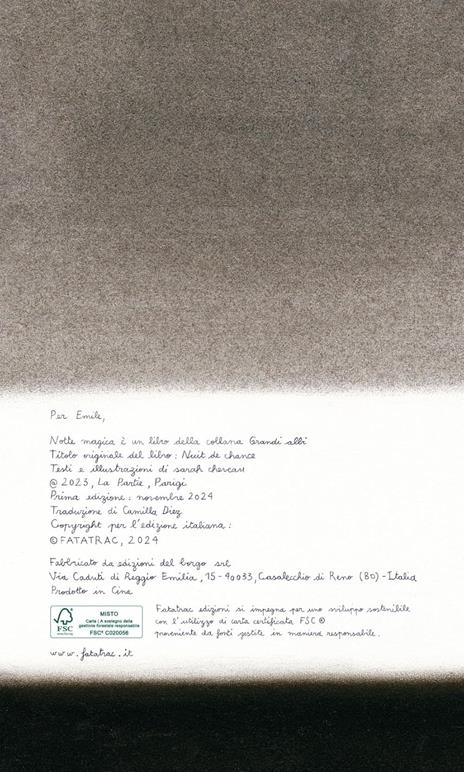 Per Emile,
Notte magica è un libro della collana Grandi albi
Titolo originale del libro: Nuit de chance
Testi e illustrazioni di sarah cheveau
@ 2023, La Partie, Parigi
Prima edizione: novembre 2024
Traduzione di Camilla Diez
Copyright per l'edizione italiana:
© FATATRAC, 2024
Fabbricato da edizioni del borgo srl
Via Caduti di Reggio Emilia, 15 - 40033, Casalecchio di Reno (BO) - Italia
Prodotto in Cina
FSC
MISTO
Carta | A sostegno della
gestione forestale responsabile
FSC® C020056
Fatatrac edizioni si impegna per uno sviluppo sostenibile
con l'utilizzo di carta certificata FSC ®
proveniente da fonti gestite in maniera responsabile.
www.fatatrac.it